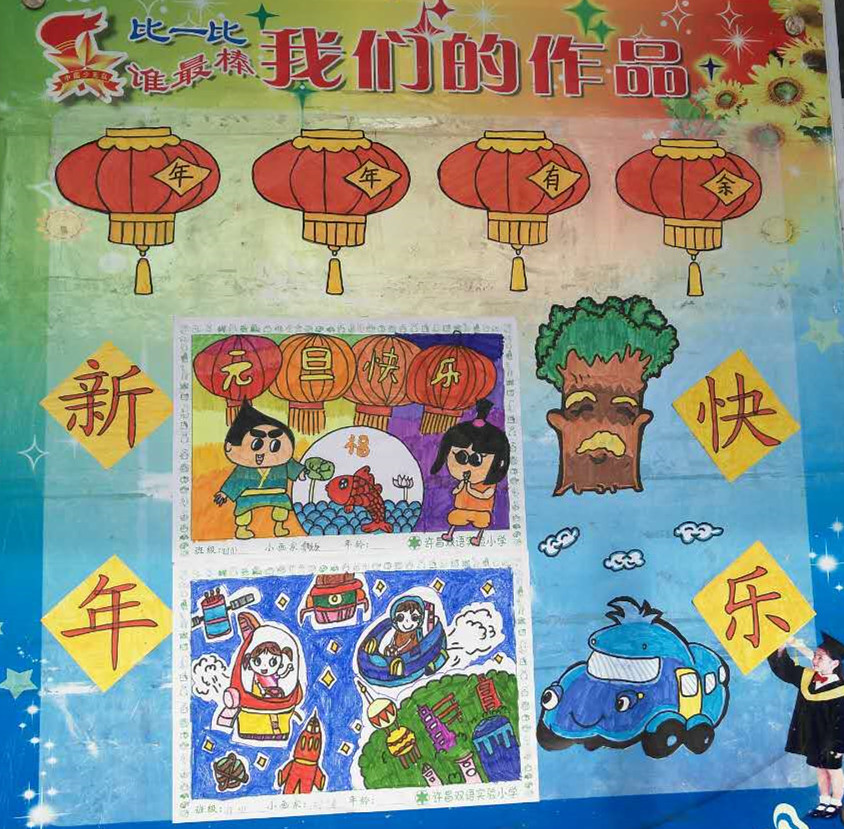 比一比
谁最棒
我们的作品
年 年 有 余
元旦快乐
福
新 快
年 乐
班级:
小画家:
年龄:
许昌双语实验小学
班级:
小画家:
年龄:
许昌双语实验小学